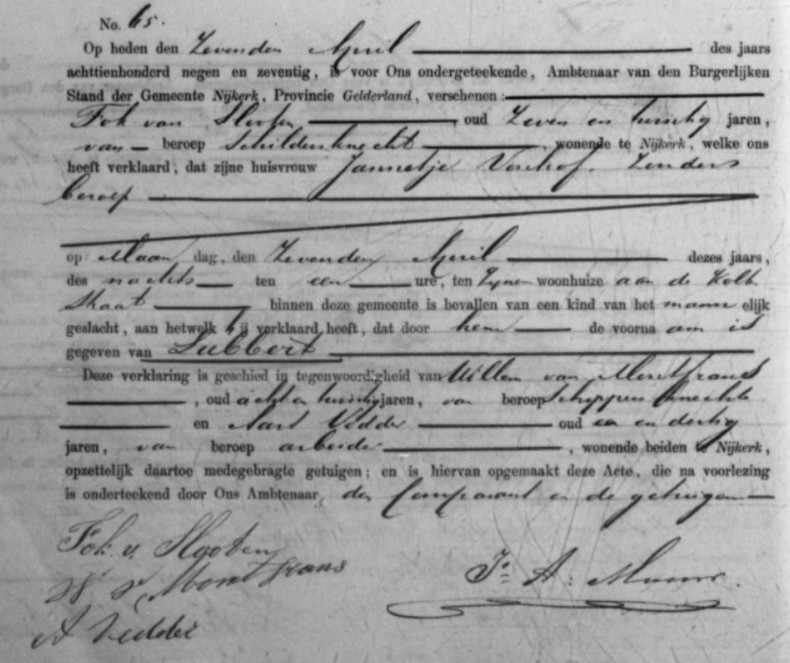 No. 65.
Op heden den Zevenden April des jaars
achttienhonderd negen en zeventig, is voor Ons ondergeteekende, Ambtenaar van den Burgerlijken
Stand der Gemeente Nijkerk, Provincie Gelderland, verschenen:
Fok van Slooten oud Zeven en twintig jaren,
van beroep Schildersknecht wonende te Nijkerk, welke ons
heeft verklaard, dat zijne huisvrouw Jannetje Zonder
beroep
op Maan dag, den Zevenden April dezes jaars,
des nachts ten een ure, ten Zijnen woonhuize aan de Kolk
Straat binnen deze gemeente is bevallen van een kind van het mann elijk
geslacht, aan hetwelk hij verklaard heeft, dat door hem de voorna am is
gegeven van Lubbert
Deze verklaring is geschied in tegenwoordigheid van Willem van
, oud acht en twintig jaren, van beroep Schippersknecht
en Aart Vedder oud een en dertig
jaren, van beroep arbeider, wonende beiden te Nijkerk,
opzettelijk daartoe medegebragte getuigen; en is hiervan opgemaakt deze Acte, die na voorlezing
is onderteekend door Ons Ambtenaar, den Comparant en de getuigen
Fok v. Slooten
A Vedder